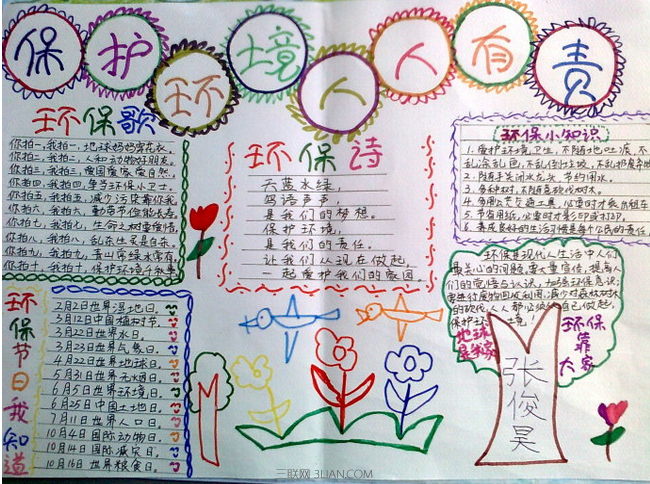 保护环境人人有责
环保歌
你拍一,我拍一,地球妈妈穿花衣。
你拍二,我拍二,人和动物好朋友。
你拍三,我拍三,爱国爱家爱自然。
你拍四,我拍四,争当环保小卫士。
你拍五,我拍五,减少污染靠你我。
你拍六,我拍六,勤俭节约
你拍七,我拍七,生命之树要爱惜。
你拍八,我拍八,乱杀生灵是自杀。
你拍九,我拍九,青山常绿水常有。
你拍十,我拍十,保护环境
环保诗
天蓝水绿,
鸟语声声,
是我们的梦想。
保护环境,
是我们的责任。
让我们从现在做起,
一起爱护我们的家园
环保小知识
1.爱护环境卫生,不随地吐痰,不
乱涂乱画,不乱倒垃圾,不乱扔
2.随手关闭水龙头,节约用水。
3.多种树,不随意砍伐树木。
4.多用公共交通工具,必要时才乘出租车
5.节省用纸,必要时才影印或打印。
6.养成良好的生活习惯是每个公民的责任。
环保是现代人生活中人们
最关心的问题,要大量宣传,提高人
们的觉悟与认识,加强环保意识;
的回收利用,减少对森林树木
的砍伐,人人都必须从自己做起,
保护环境!
地球是我家
环保靠大家
张俊昊
环保节日我知道
2月2日世界湿地日。
3月12日中国植树节。
3月22日世界水日。
3月23日世界气象日。
4月22日世界地球日。
5月31日世界无烟日。
6月5日世界环境日。
6月25日中国土地日。
7月11日世界人口日。
10月4日国际动物日。
10月14日国际减灾日。
10月16日世界粮食日。
三联网 3LIAN.COM